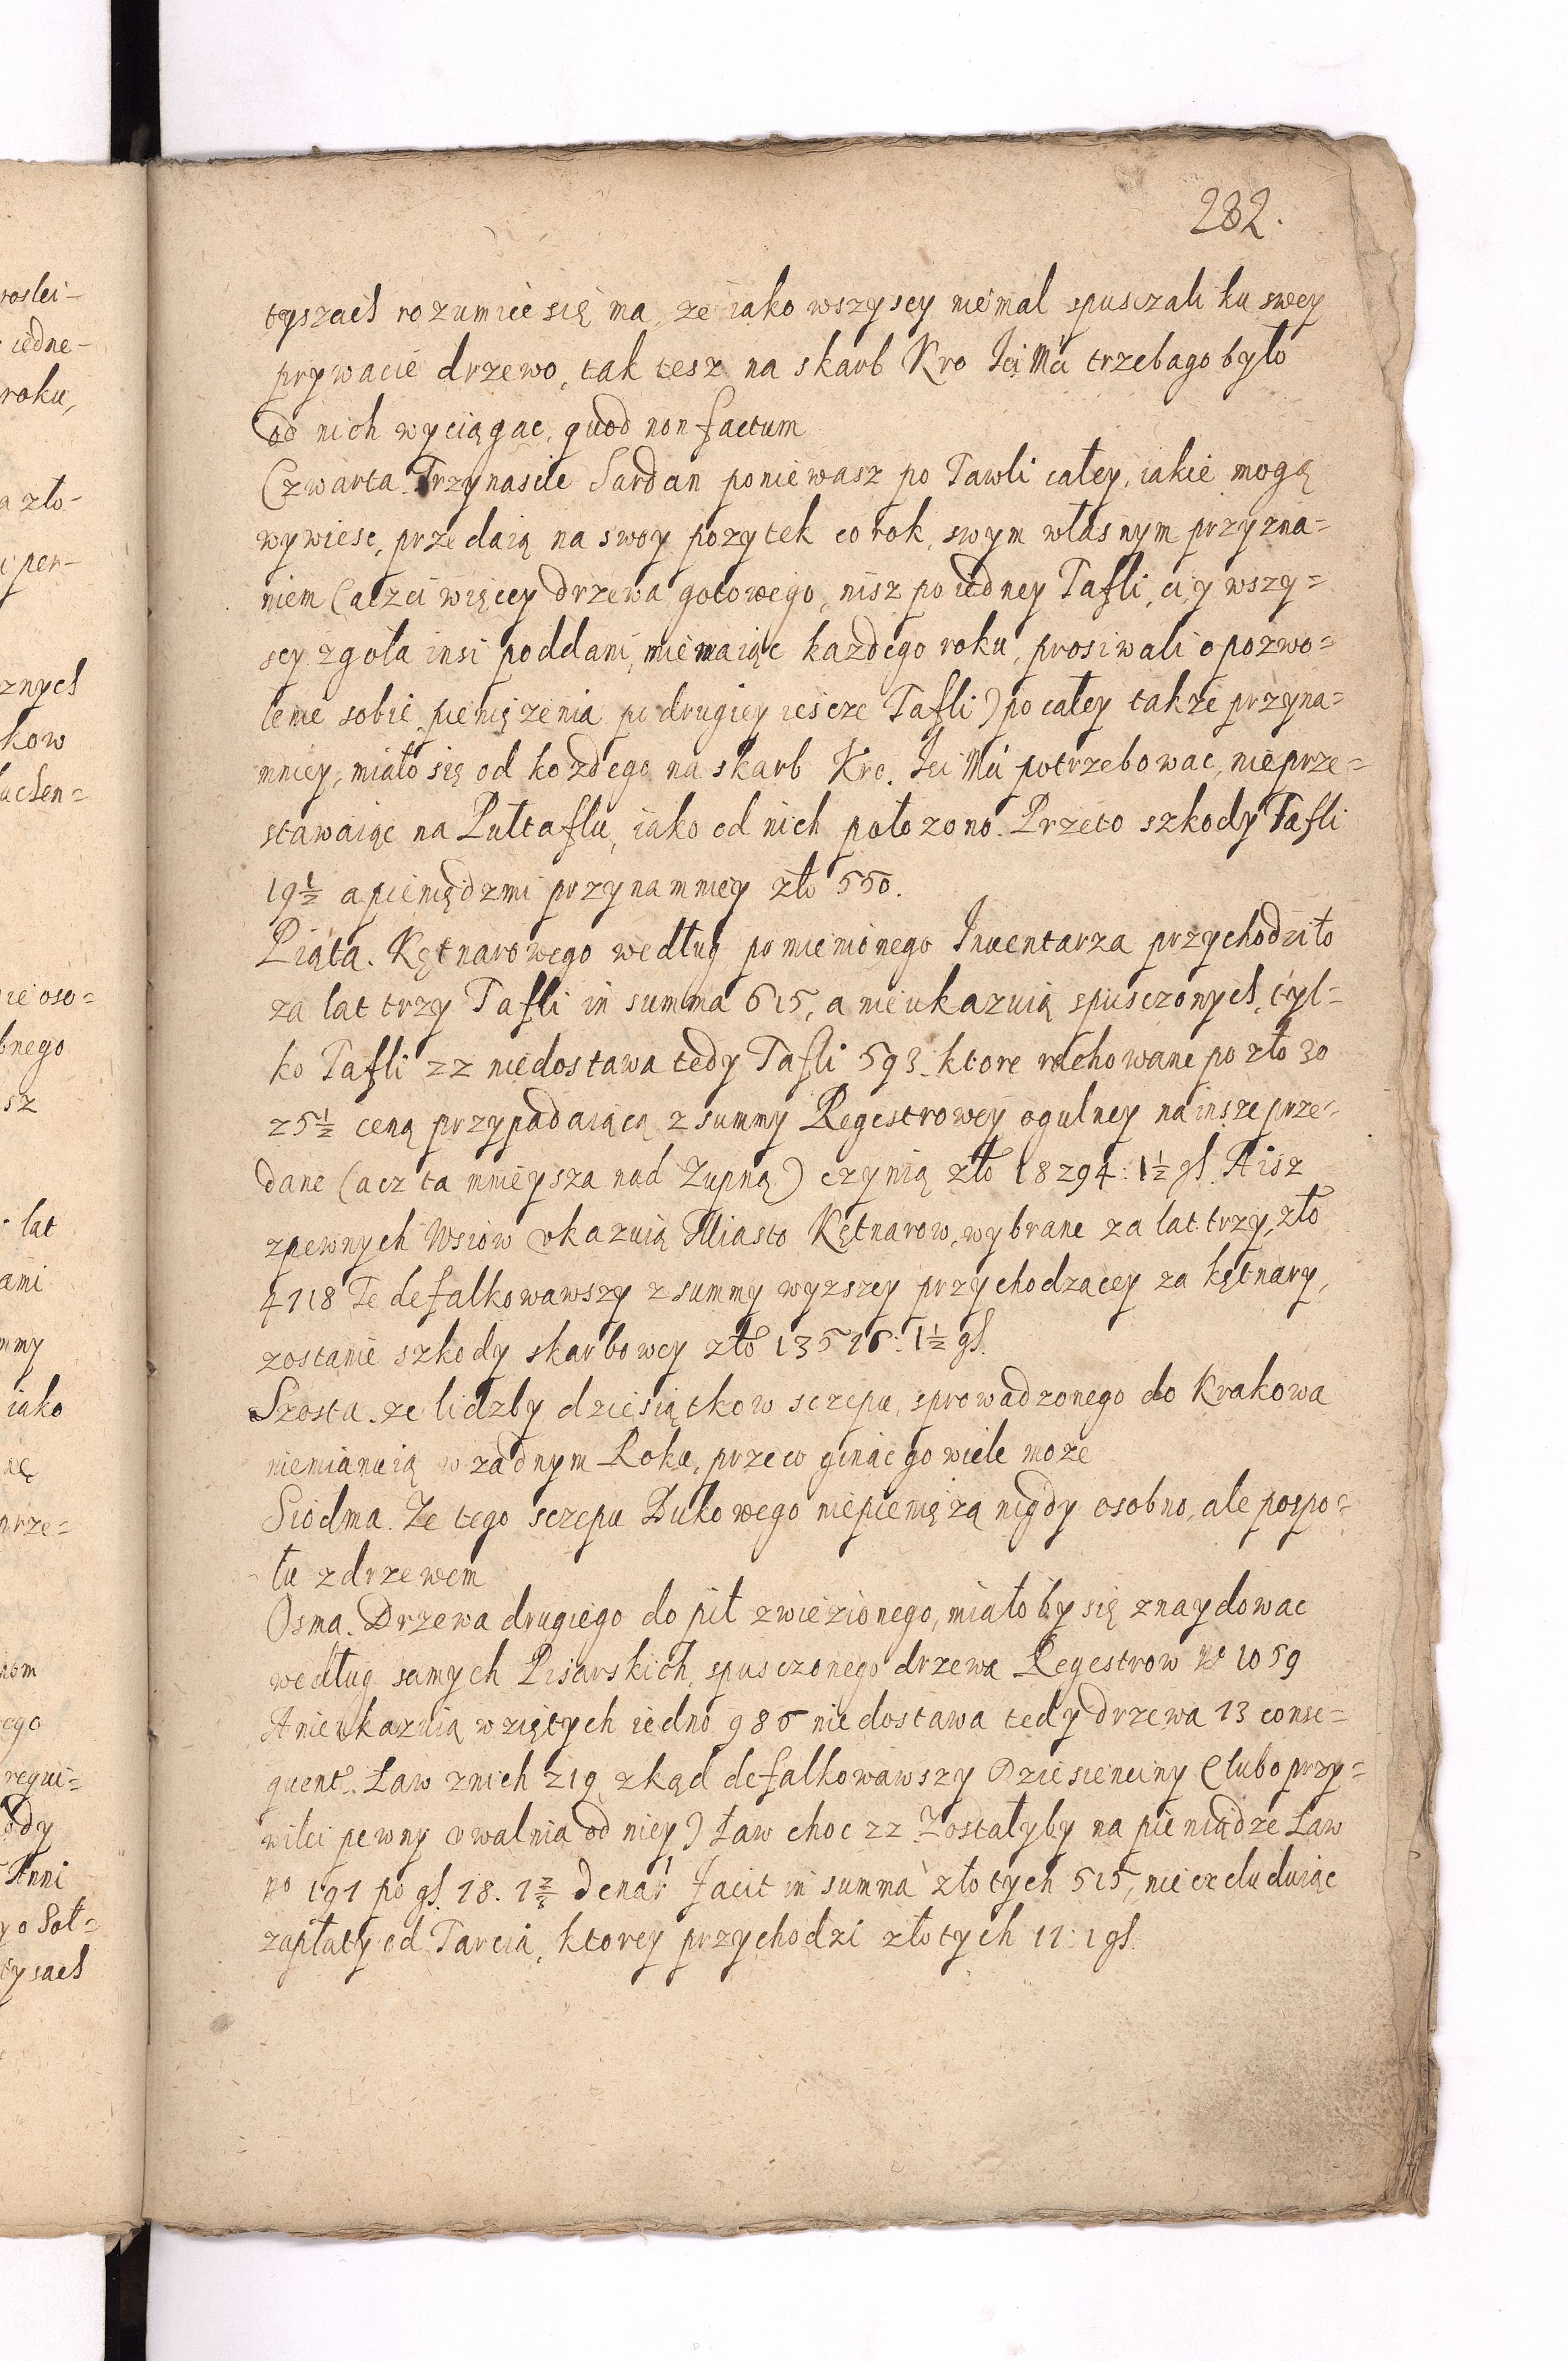 282.
tyszach rozumieć się ma, ze iako wszyscy niemal spuszczali ku swey
prywacie drzewo, tak tesz na skarb Kro Jci Mci trzebago było
od nich wyciągac, quod non factum
Czwarta. Trzynascie Sardan poniewasz po Tawli całey, iakie mogą
wywiesc, przedaią na swoy pozytek co rok, swym własnym przyzna=
niem (aczci więcey drzewa gotowego, nisz po iedney Tafli, ci y wszy=
scy zgoła insi poddani, niemaiąc kazdego roku, prosiwali o pozwo=
lenie sobie pieniężenia po drugiey iescze Tafli) po całey takze przyna=
mniey, miało się od kozdego na skarb Kro. Jci Mci potrzebowac, nieprze=
stawaiąc na Pułtaflu, iako od nich połozono. Przeto szkody Tafli
19½ a pieniędzmi przynamniey zło 550.
Piąta. Kętnarowego według pomienionego Inuentarza przychodziło
za lat trzy Tafli in summa 615, a nieukazuią spusczonych, tyl=
ko Tafli 22 niedostawa tedy Tafli 593. ktore rachowane po zło 30
25½ ceną przypadaiącą z summy Regestrowey ogulney na insze prze=
dane (acz ta mnieysza nad Zupną) czynią zło 18294: 1½ gl. Aisz
zpewnych Wsiow okazuią Miasto Kętnarow, wybrane za lat trzy, zło
4718 Te defalkowawszy z summy wyzszey przychodzacey za kętnary,
zostanie szkody skarbowey zło 13576: 1½ gl.
Szosta. ze lidzby dziesiątkow sczepu, sprowadzonego do Krakowa
niemianuią w zadnym Roku, przeco ginąc go wiele moze
Siodma. Ze tego sczepu Bukowego niepieniężą nigdy osobno, ale pospo=
łu zdrzewem
Osma. Drzewa drugiego do pił zwiezionego, miałoby się znaydowac
według samych Pisarskich, spusczonego drzewa Regestrow No 1059
A nieukazuią wziętych iedno 986 niedostawa tedy drzewa 73 conse=
quent. Ław znich 219 zkąd defalkowawszy Dziesienciny (lubo przy=
wilei pewny uwalnia od niey) Ław choc 22 Zostałyby na pieniądze Ław
No 197 po gl. 18. 1 denar facit in summa złotych 515, nieexcluduiąc
zapłaty od Tarcia, ktorey przychodzi złotych 11: 1 gl.